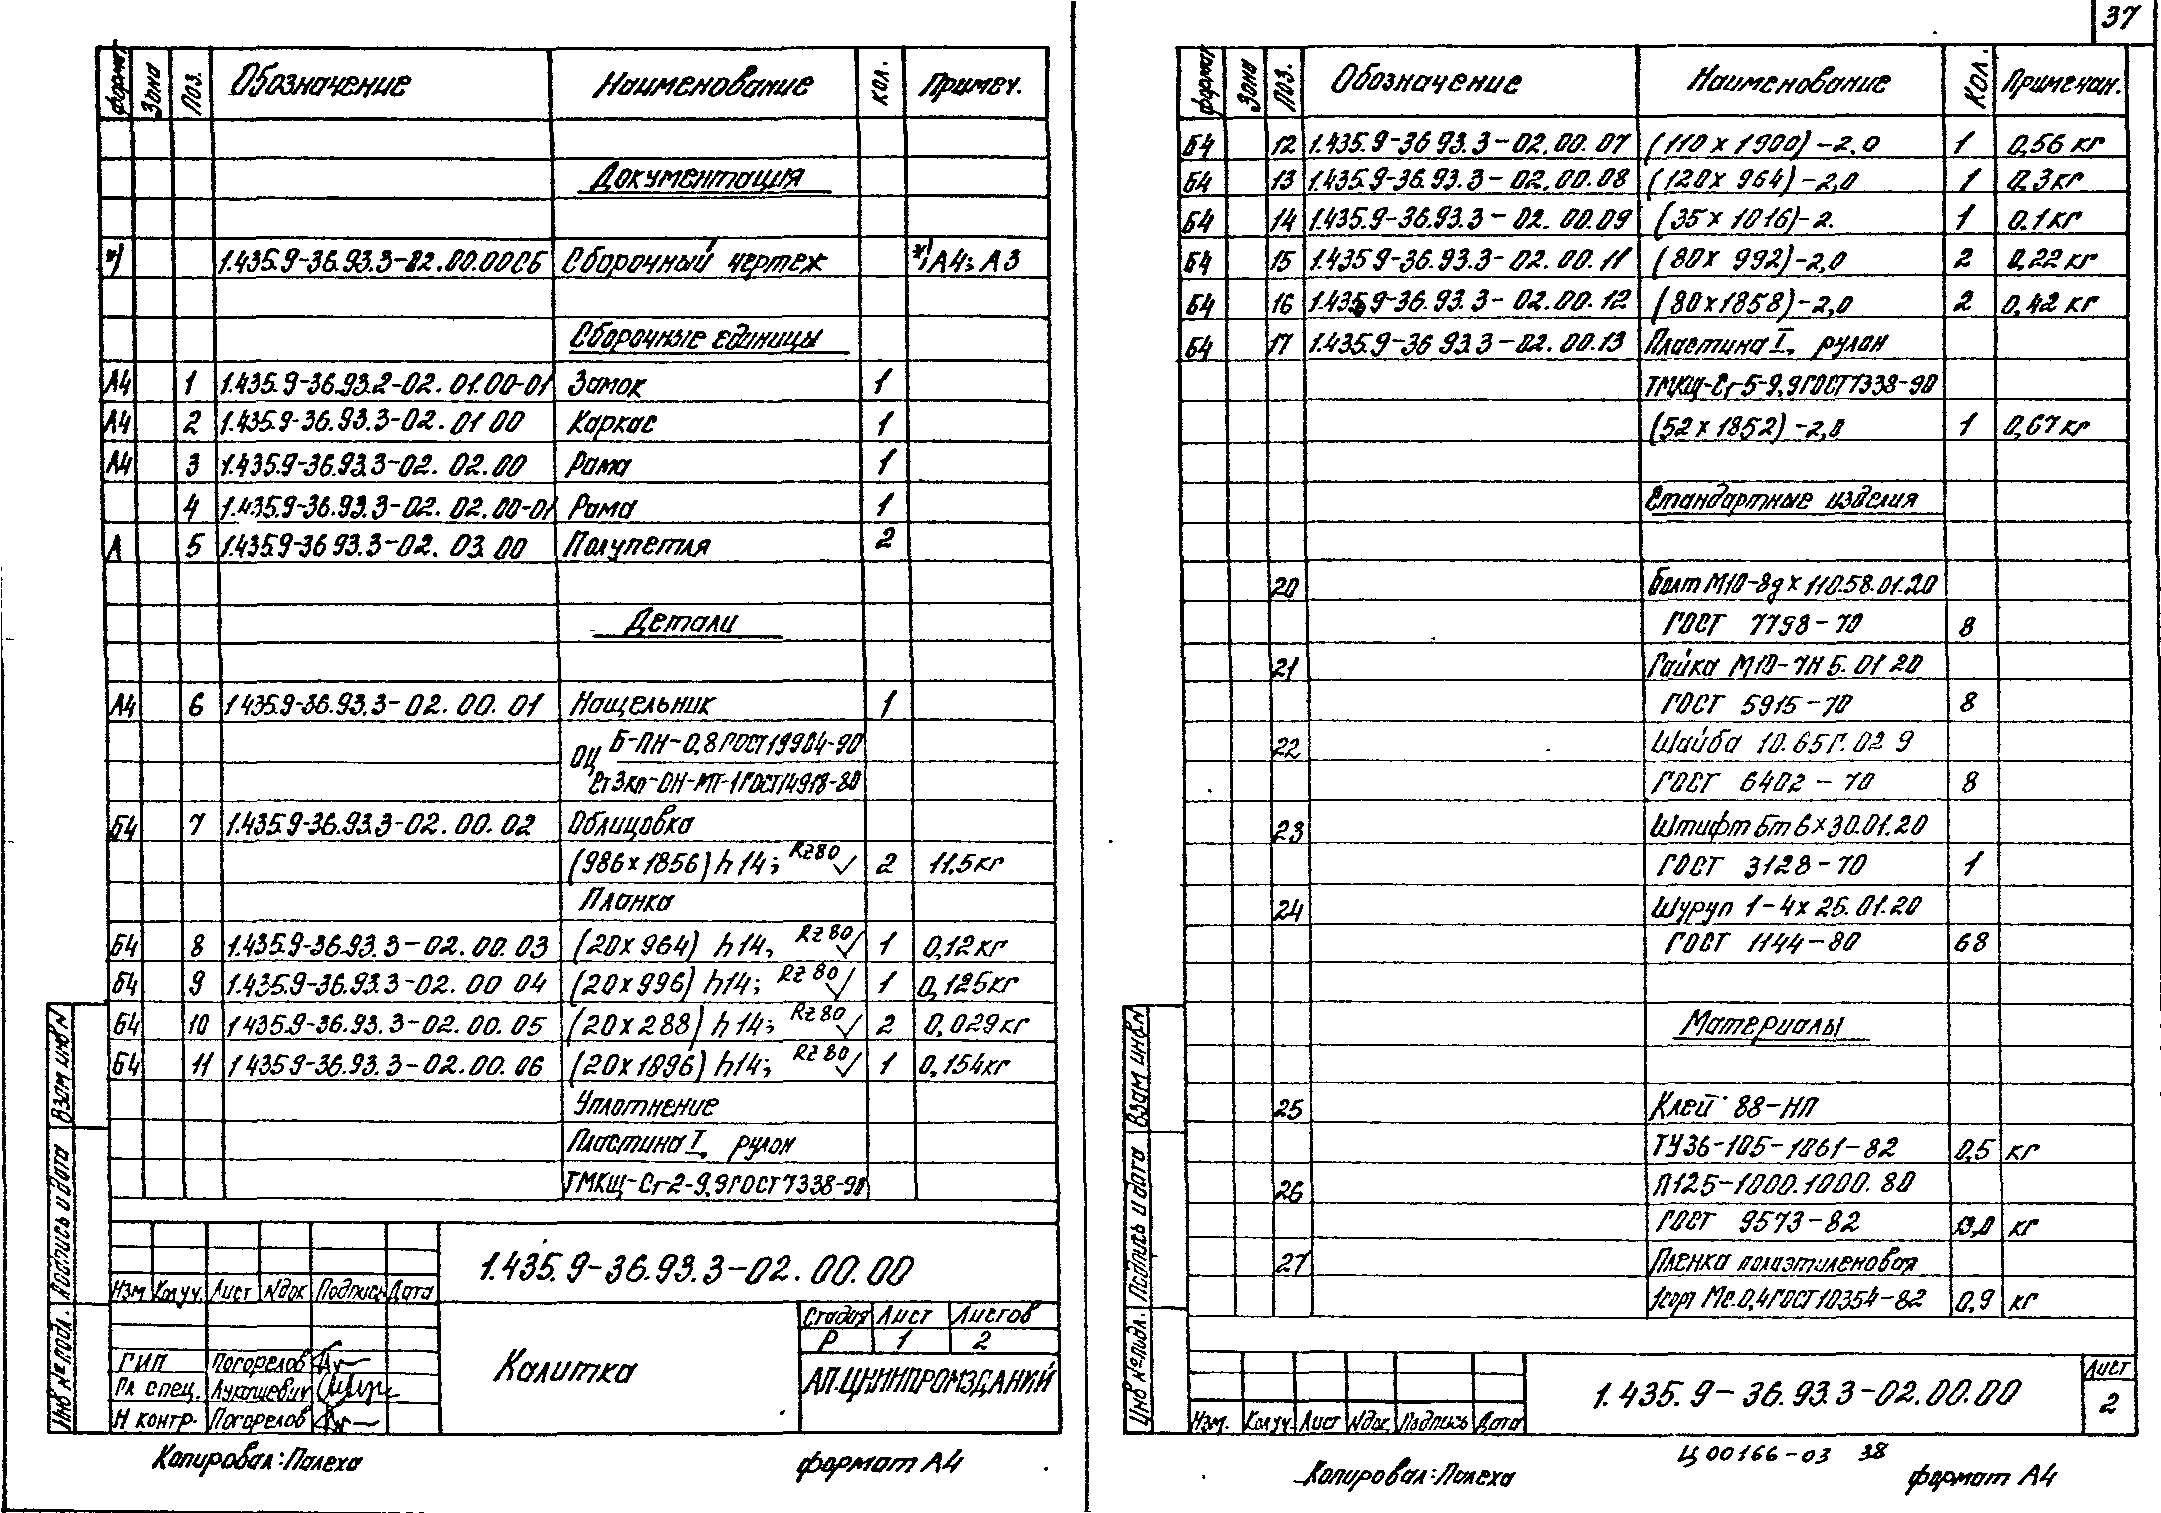 формат Зона Поз. Обозначение Наименование кол. Примеч.
Документация
*) 1.435.9-36.93.3-02.00.00СБ Сборочный чертеж *) А4; А3
Сборочные единицы
А4 1 1.435.9-36.93.2-02.01.00-01 Замок 1
А4 2 1.435.9-36.93.3-02.01 00 Каркас 1
А4 3 1.435.9-36.93.3-02.02.00 Рама 1
4 1.435.9-36.93.3-02.02.00-01 Рама 1
А 5 1.435.9-36 93.3-02.03.00 Полупетля 2
Детали
А4 6 1 435.9-36.93.3-02.00.01 Нащельник 1
ОЦ Б-ПН-0,8 ГОСТ 19904-90
Ст3кп-ОН-МТ-1 ГОСТ 14918-80
Б4 7 1.435.9-36.93.3-02.00.02 Облицовка
(986х1856) h14; Rz80 2 11,5кг
Планка
Б4 8 1.435.9-36.93.3-02.00.03 (20х964) h14; Rz80 1 0,12кг
Б4 9 1.435.9-36.93.3-02.00 04 (20х996) h14; Rz80 1 0,125кг
Б4 10 1 435.9-36.93.3-02.00.05 (20х288) h14; Rz80 2 0,029кг
Б4 11 1 435 9-36.93.3-02.00.06 (20х1896) h14; Rz80 1 0,154кг
Уплотнение
Пластина I, рулон
ТМКЩ-Сг2-9,9 ГОСТ 7338-90
Взам инв N
Подпись и дата
Инв № подл.
1.435.9-36.93.3-02.00.00
Изм Кол.уч. Лист Nдок Подпись Дата
Стадия Лист Листов
Р 1 2
Калитка
АП.ЦНИИПРОМЗДАНИЙ
ГИП Погорелов
Гл спец. Лукашевич
Н контр. Погорелов
Копировал: Палеха
формат А4
37
формат Зона Поз. Обозначение Наименование Кол. Примечан.
Б4 12 1.435.9-36 93.3-02.00.07 (110х1900)-2.0 1 0,56 кг
Б4 13 1.435.9-36.93.3-02.00.08 (120х964)-2,0 1 0,3кг
Б4 14 1.435.9-36.93.3-02.00.09 (35х1016)-2. 1 0.1кг
Б4 15 1.435 9-36.93.3-02.00.11 (80х992)-2,0 2 0,22кг
Б4 16 1.435.9-36.93.3-02.00.12 (80х1858)-2,0 2 0,42 кг
Б4 17 1.435.9-36 93.3-02.00.13 Пластина I, рулон
ТМКЩ-Сг5-9,9 ГОСТ 7338-90
(52х1852)-2,0 1 0,67кг
Стандартные изделия
20 Болт М10-8gх110.58.01.20
ГОСТ 7798-70 8
21 Гайка М10-7Н 5.01 20
ГОСТ 5915-70 8
22 Шайба 10.65Г.02 9
ГОСТ 6402-70 8
23 Штифт Бт 6х30.01.20
ГОСТ 3128-70 1
24 Шуруп 1-4х25.01.20
ГОСТ 1144-80 68
Материалы
25 Клей 88-НП
ТУ36-105-1061-82 0,5 кг
26 П125-1000.1000.80
ГОСТ 9573-82 кг
27 Пленка полиэтиленовая
1сорт Мс.0,4 ГОСТ 10354-82 0,9 кг
Взам инв N
Подпись и дата
Инв № подл.
1.435.9-36.93.3-02.00.00
Лист
2
Изм. Кол.уч. Лист Nдок Подпись Дата
Ц00166-03 38
Копировал: Палеха
формат А4